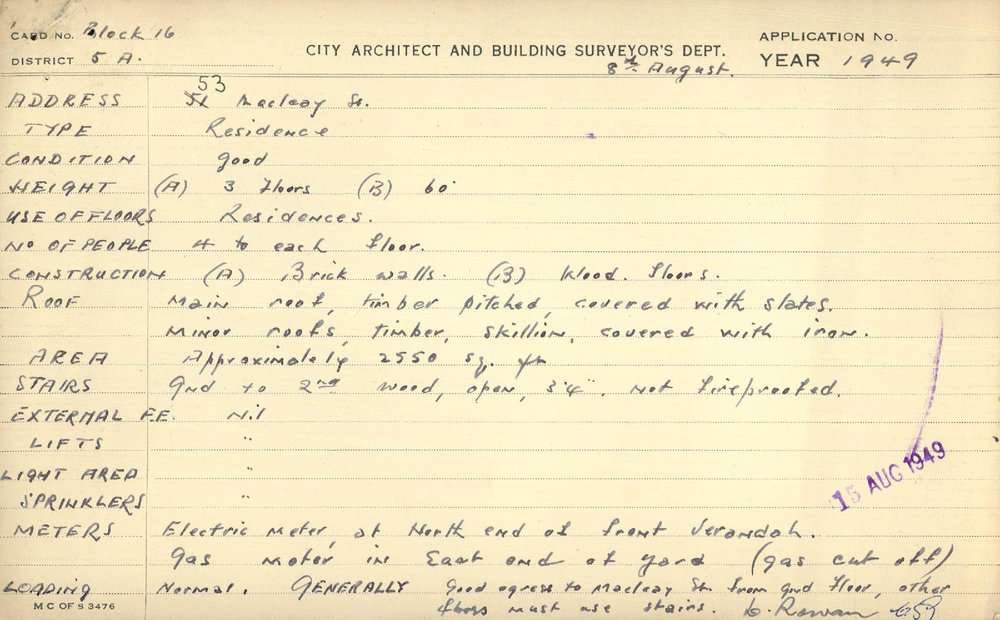 CARD NO. Block 16
CITY ARCHITECT AND BUILDING SURVEYOR'S DEPT.
APPLICATION NO.
DISTRICT 5 A.
8th August.
YEAR 1949
53
ADDRESS 51 Macleay St.
TYPE Residence
CONDITION good
HEIGHT (A) 3 floors (B) 60'
USE OF FLOORS Residences.
No OF PEOPLE 4 to each floor.
CONSTRUCTION (A) Brick walls. (B) Wood. floors.
ROOF Main roof, timber pitched, covered with slates.
Minor roofs, timber, skillion, covered with iron.
AREA Approximately 2550 sq. ft
STAIRS Gnd to 2nd wood, open, 3'4". Not fireproofed.
EXTERNAL F.E. Nil
LIFTS "
LIGHT AREA "
SPRINKLERS "
15 AUG 1949
METERS Electric meter, at North end of front verandah.
Gas motor in East end of yard (gas cut off)
LOADING Normal. GENERALLY Good egress to Macleay St. from gnd floor, other
M C OF S 3476
floors must use stairs. C. Rowan